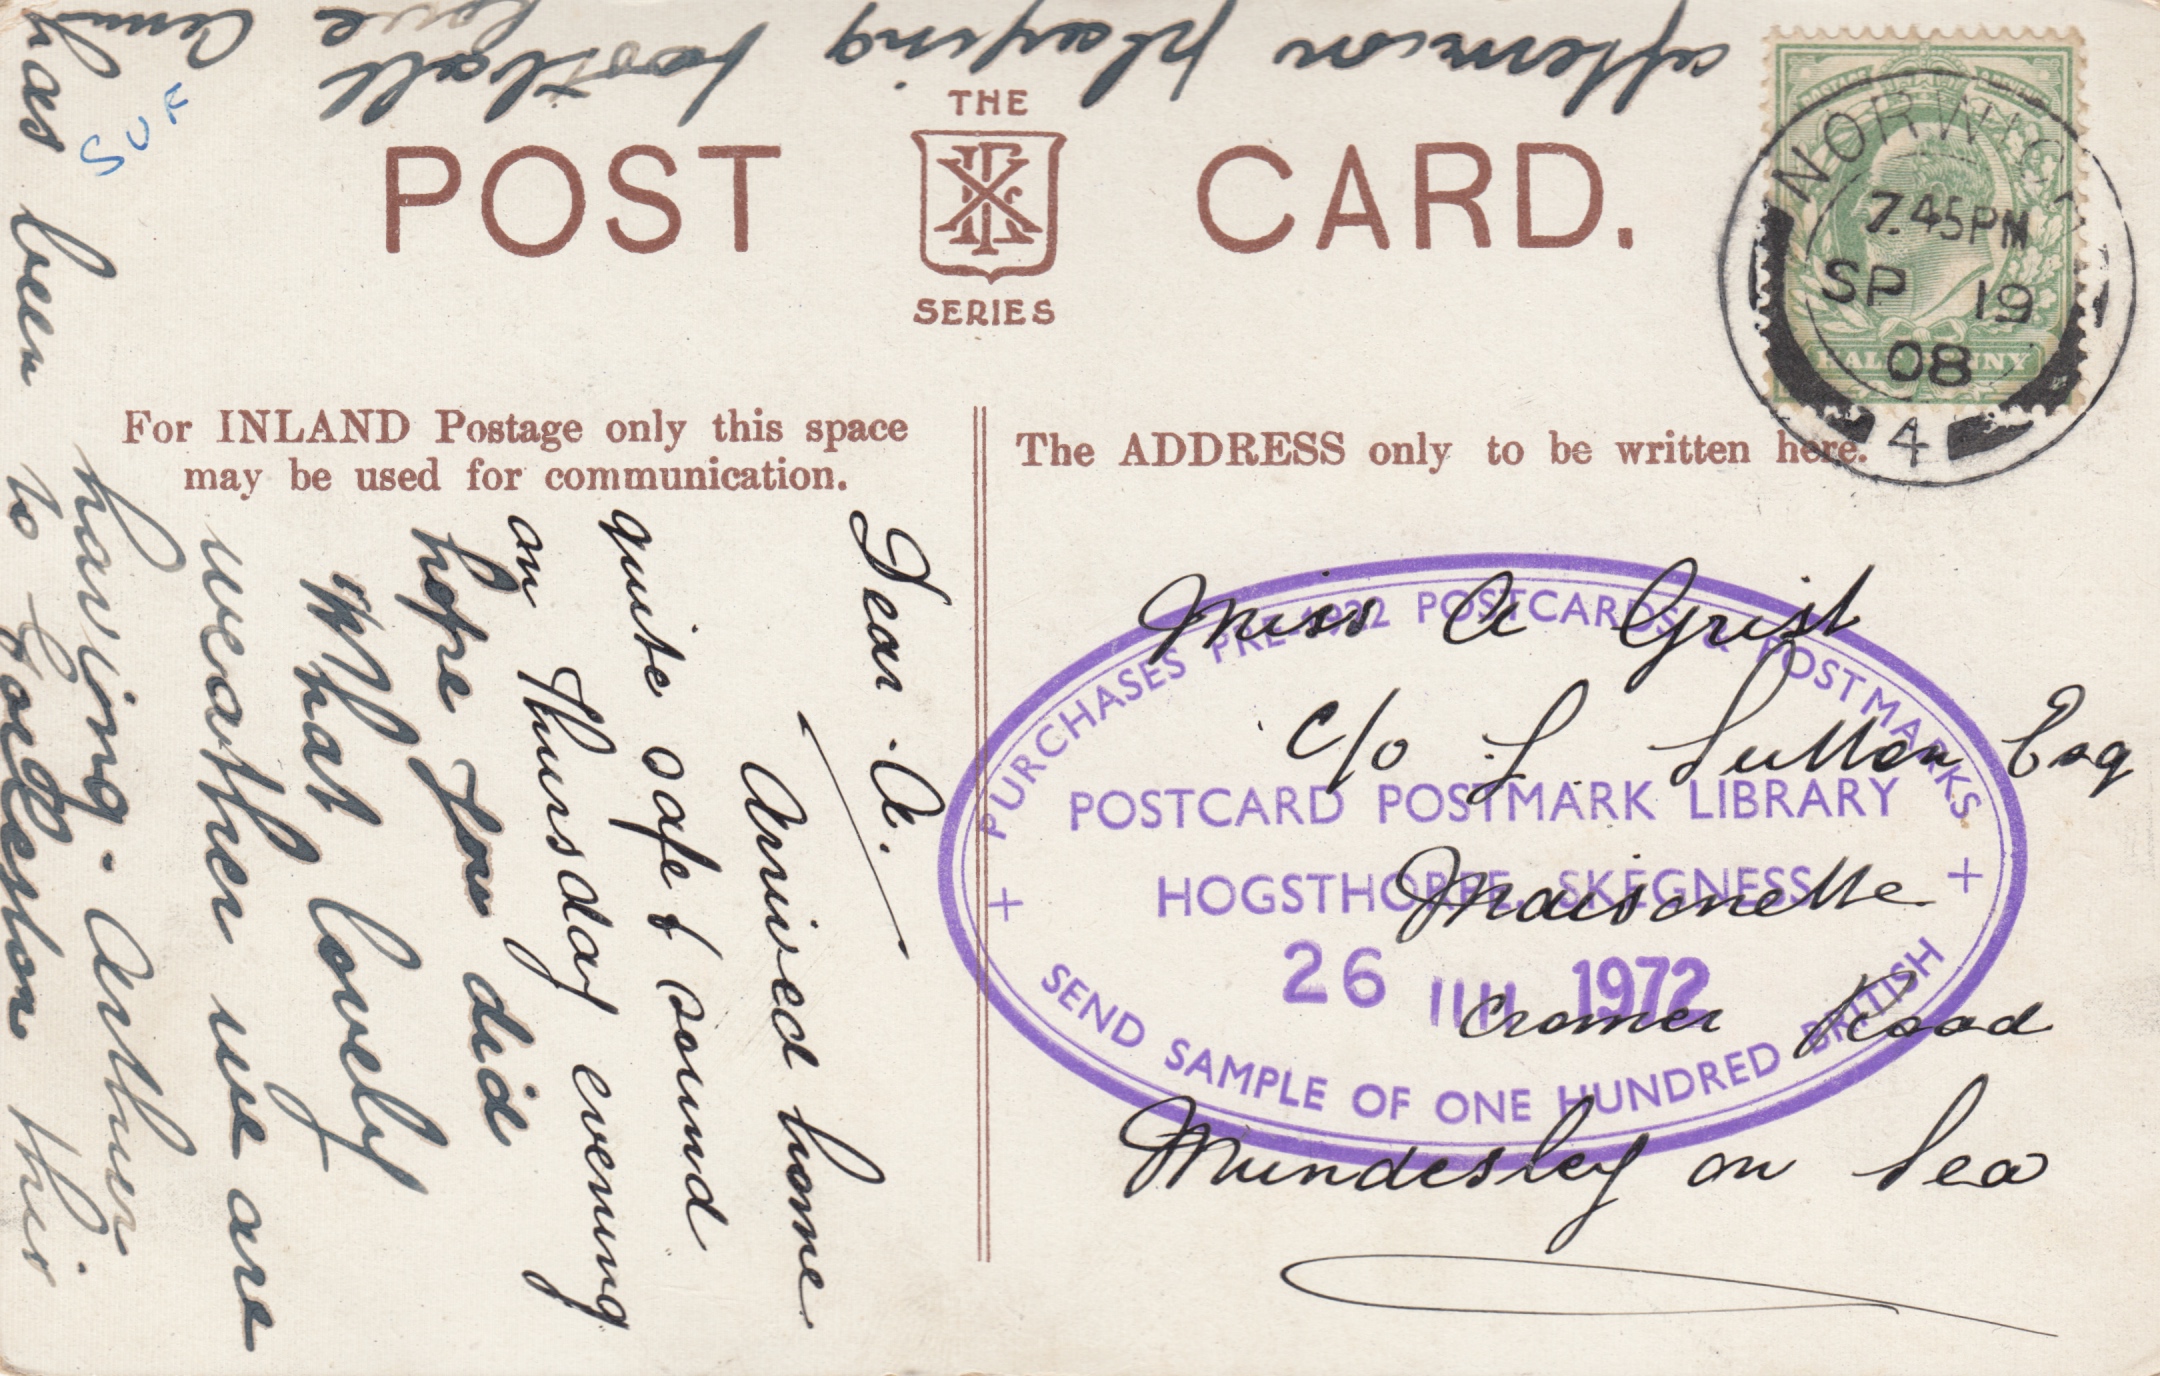 THE
POST CARD.
SERIES
For INLAND Postage only this space
may be used for communication.
The ADDRESS only to be written here.
NORWICH
7.45PM
SP 19
08
4
HALFPENNY
Miss A Grist
c/o L. Sutton Esq
Maisonette
Cromer Road
Mundesley on Sea
PURCHASES PRE-1922 POSTCARDS & POSTMARKS
POSTCARD POSTMARK LIBRARY
HOGSTHORPE, SKEGNESS
26 1972
SEND SAMPLE OF ONE HUNDRED BRITISH
Dear A.
Arrived home
quite safe & sound
on Thursday evening
hope you did
What lovely
weather we are
having. Arthur
has been to Gorleston this
afternoon playing
football
love
SUF